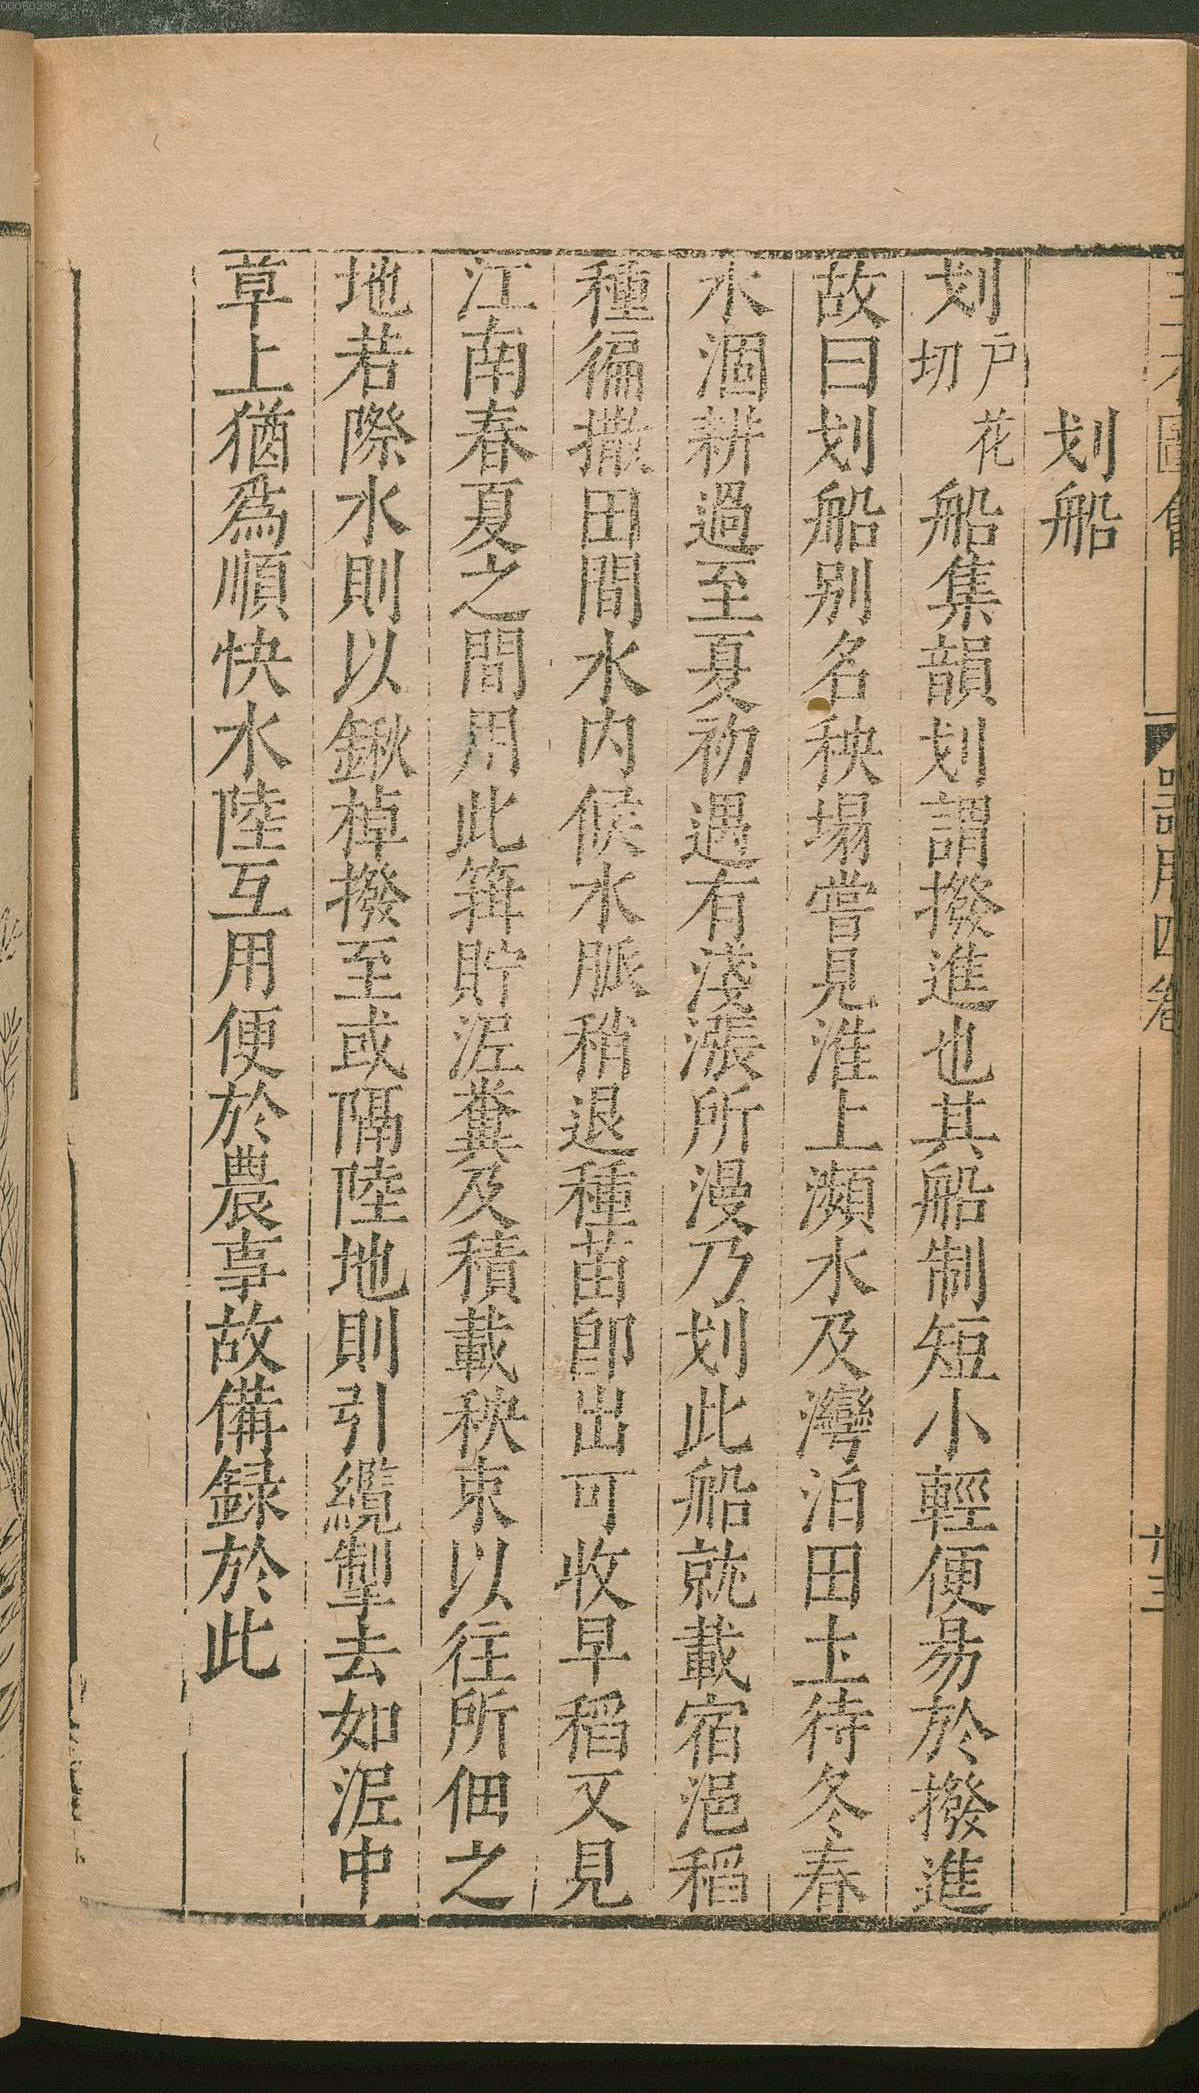 划船
划戶花切船集韻划謂撥進也其船制短小輕便易於撥進
故曰划船別名秧塌嘗見淮上瀕水及灣泊田土待冬春
水涸耕過至夏初遇有淺漲所漫乃划此船就載宿浥稻
種徧撒田間水內候水脈稍退種苗卽出可收早稻又見
江南春夏之間用此箝貯泥糞及積載秧束以往所佃之
地若際水則以鍬棹撥至或隔陸地則引纜掣去如泥中
草上猶爲順快水陸互用便於農事故備録於此
器用四卷
十三
00060338